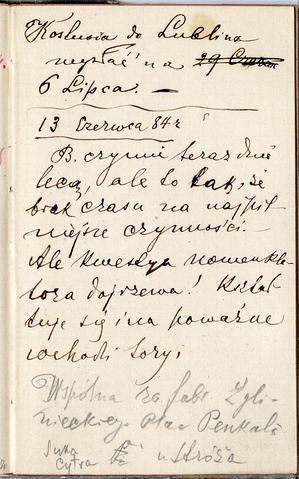 Kostusia do Lublina
wysłać na 29 Czerw
6 Lipca. —
13 Czerwca 84 r
B. czynni teraz dnie
lecą, ale to tak, że
brak czasu na najpil
niejsze czynności. —
Ale kwestya nomenkla-
tora dojrzewa! Kształ
tuje się i na poważne
wchodzi tory,
Wspólna za fabr.
nieckiego Plac Penkali
Cytra u stróża